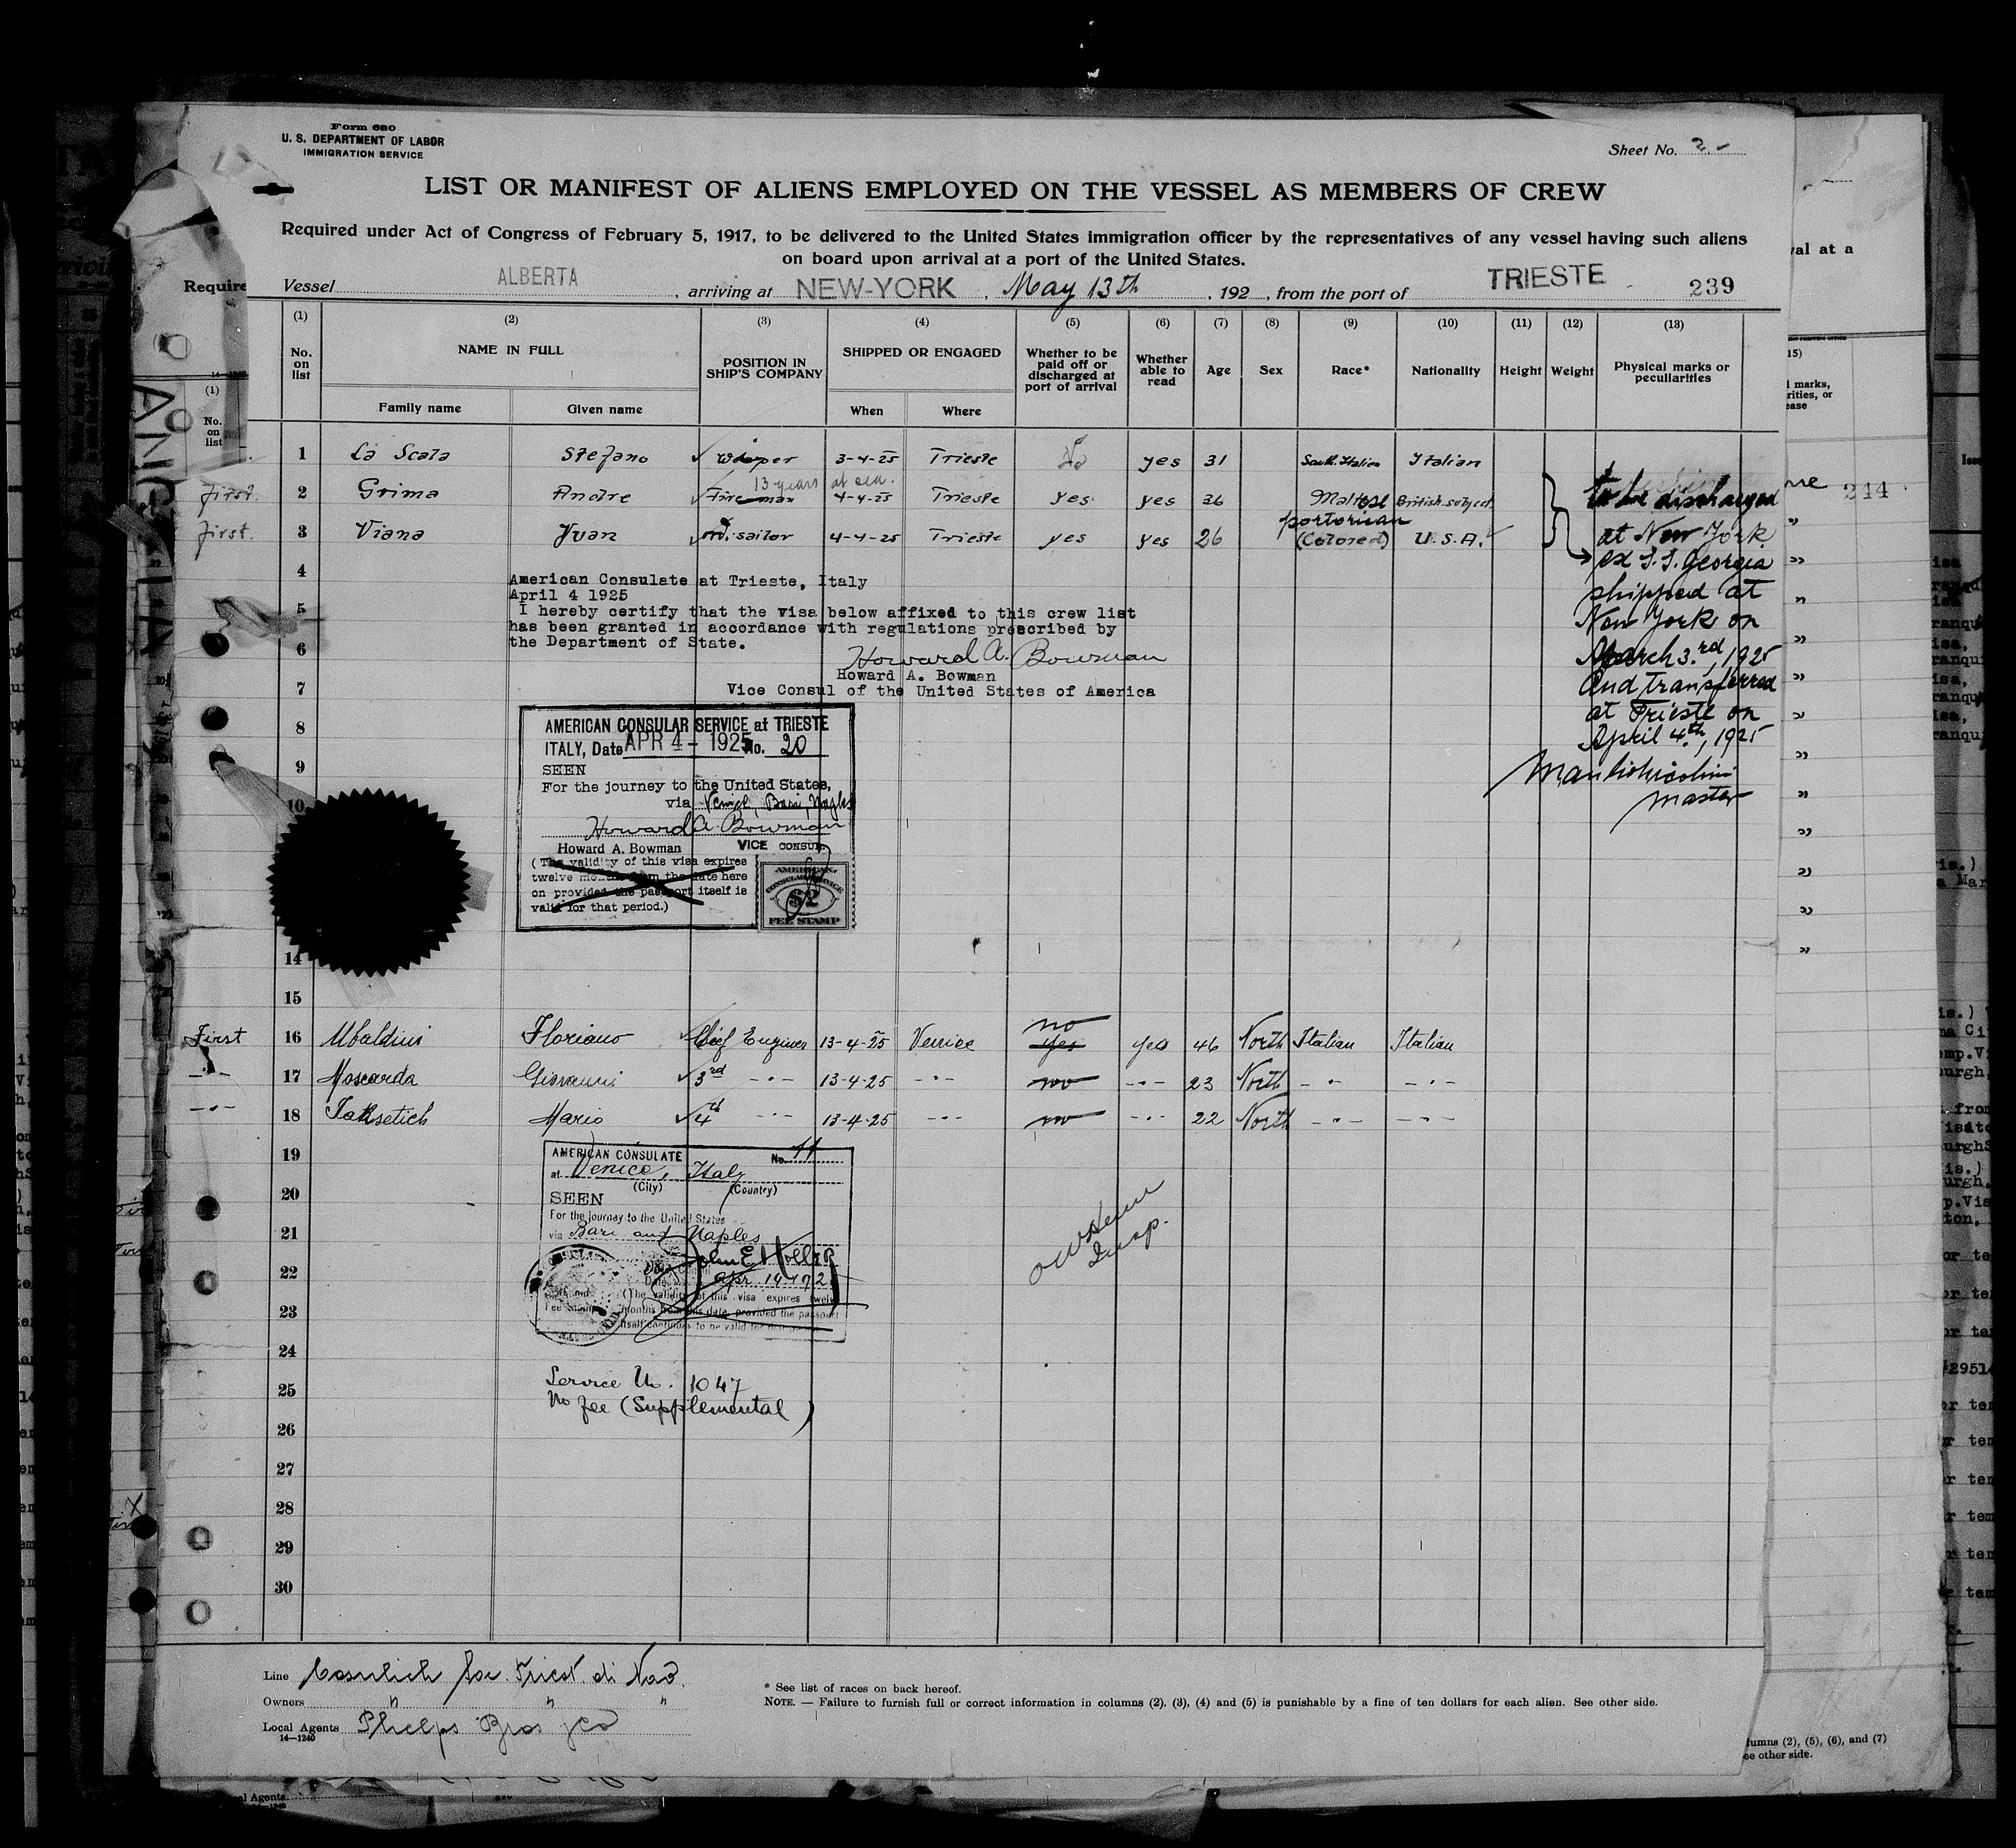 Form 680
U. S. DEPARTMENT OF LABOR
IMMIGRATION SERVICE
Sheet No. 2
LIST OR MANIFEST OF ALIENS EMPLOYED ON THE VESSEL AS MEMBERS OF CREW
Required under Act of Congress of February 5, 1917, to be delivered to the United States immigration officer by the representatives of any vessel having such aliens
on board upon arrival at a port of the United States.
Vessel ALBERTA, arriving at NEW-YORK, May 13th, 192 , from the port of TRIESTE 239
(1) (2) (3) (4) (5) (6) (7) (8) (9) (10) (11) (12) (13)
No. on list NAME IN FULL POSITION IN SHIP'S COMPANY SHIPPED OR ENGAGED Whether to be paid off or discharged at port of arrival Whether able to read Age Sex Race* Nationality Height Weight Physical marks or peculiarities
Family name Given name When Where
1 La Scala Stefano wiper 3-4-25 Trieste No yes 31 South Italian Italian
13 years at sea.
first. 2 Grima Andre Fireman 4-4-25 Trieste yes yes 36 Maltese British subject
first. 3 Viana Juan ord. sailor 4-4-25 Trieste yes yes 26 portorican (Colored) U.S.A.
to be discharged
at New York
ex S.S. Georgia
shipped at
New York on
March 3rd, 1925
and transferred
at Trieste on
April 4th, 1925
master
4
American Consulate at Trieste, Italy
April 4 1925
5
I hereby certify that the visa below affixed to this crew list
has been granted in accordance with regulations prescribed by
the Department of State.
6
Howard A. Bowman
Howard A. Bowman
7
Vice Consul of the United States of America
8
AMERICAN CONSULAR SERVICE at TRIESTE
ITALY, Date APR 4 - 1925 No. 20
9
SEEN
For the journey to the United States,
10
via Venice, Bari, Naples
Howard A. Bowman
Howard A. Bowman VICE CONSUL
(The validity of this visa expires
twelve months from the date here
on provided the passport itself is
valid for that period.)
AMERICAN
CONSULAR SERVICE
$2
FEE STAMP
14
15
First 16 Ubaldini Floriano Chief Engineer 13-4-25 Venice no yes yes 46 North Italian Italian
-"- 17 Moscarda Giovanni 3rd -"- 13-4-25 -"- no -"- 23 North -"- -"-
-"- 18 Mario 4th -"- 13-4-25 -"- no -"- 22 North -"- -"-
19
AMERICAN CONSULATE No. 11
at Venice, Italy
(City) (Country)
20
SEEN
For the journey to the United States
21
via Bari and Naples
22
(The validity of this visa expires twelve
23
months from this date, provided the passport
itself continues to be valid for that period.)
Insp.
24
Service No. 1047
25
No fee (Supplemental)
26
27
28
29
30
Line Cosulich Soc. Triest. di Nav.
Owners " " "
Local Agents Phelps Bros & Co
14—1240
* See list of races on back hereof.
NOTE. — Failure to furnish full or correct information in columns (2), (3), (4) and (5) is punishable by a fine of ten dollars for each alien. See other side.
Require
(1)
No.
on
list
val at a
244
lumns (2), (5), (6), and (7)
ee other side.